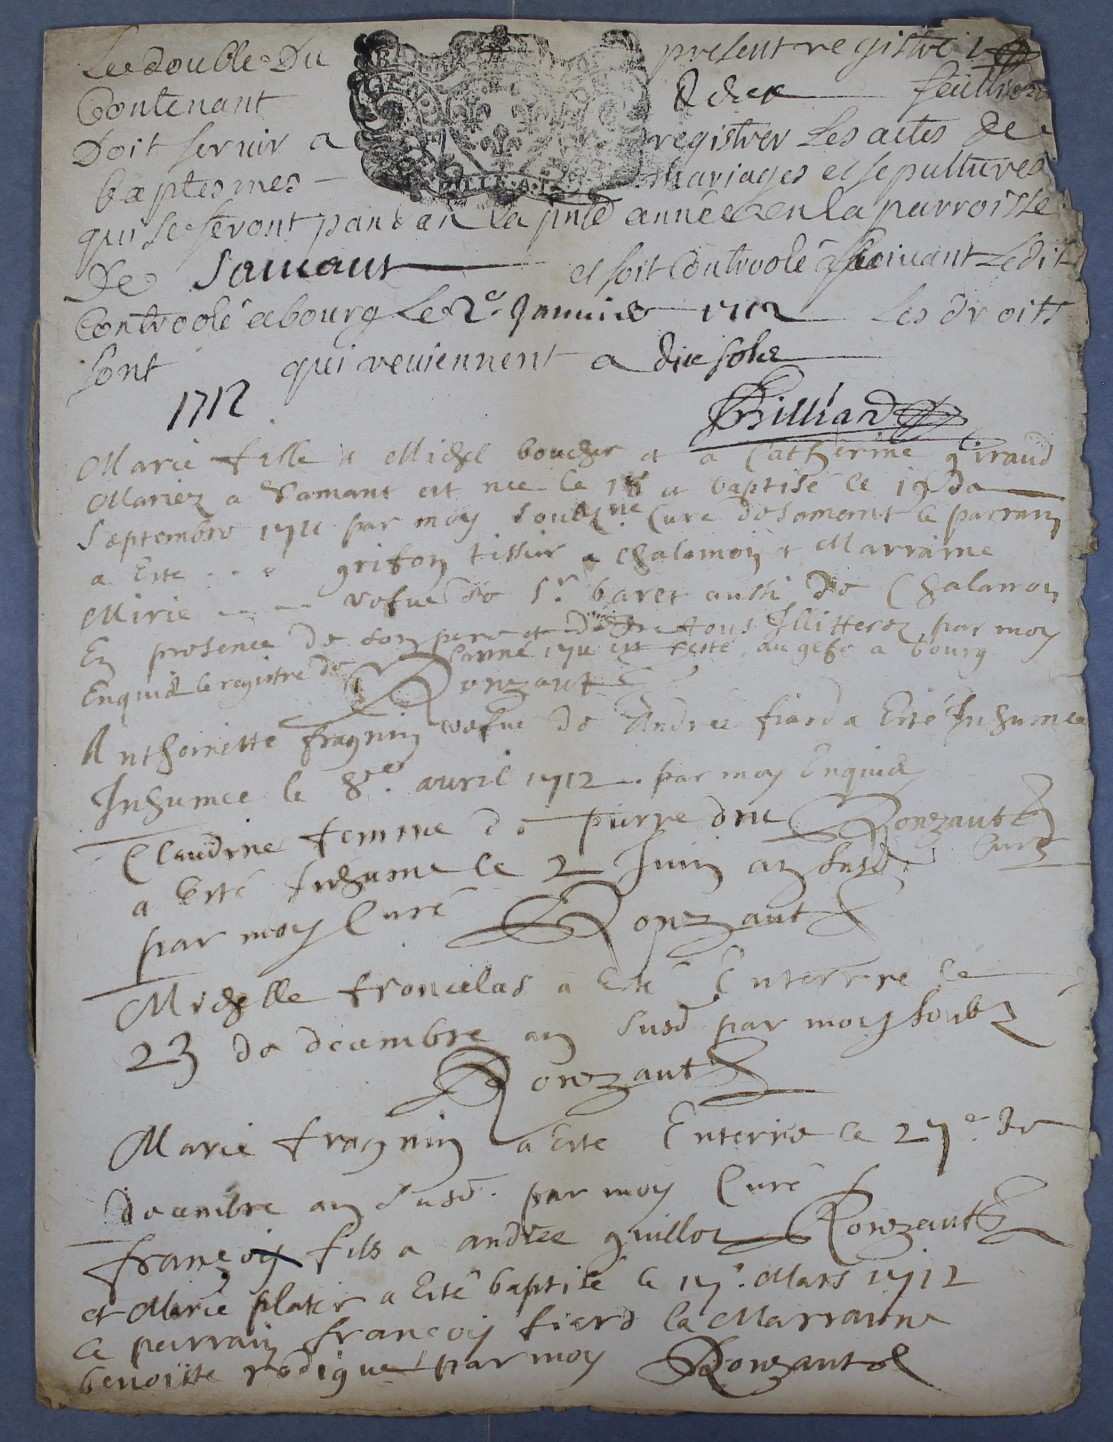 Le double Du present registre
Contenant feuillets
Doit servir a registrer Les actes de
baptesmes mariages et sepultures
qui se feront pandan la pnte année en la parroisse
De Samant et soit Controolé suivant Ledit
Controolé a bourg Le 2e Janvier 1712 Les droits
sont qui reviennent a dix sols
1712
Billiard
Marie fille a Michel boucher et a Catherine giraud
Mariez a Samant est nee le 18 et baptisé le 19 de
Septembre 1711 par moy soubzne Curé de Samant le parrain
a Esté . . . grifon tissier a Chalamon et Marraine
Mirie . . . . vefue de Sr. baret aussi de Chalamon
En presence de son pere et de tous Illitterez par moy
Enquid le registre de l'année 1711 est resté au gefe a bourg
Ronzault
Anthoinette fragnin vefue de Andree fiard a Esté Inhumee
Inhumee le 8e. avril 1712 . par moy Enquid
Claudine femme de pierre druc Ronzault Curé
a Esté Inhume le 2 Juin an susd.
par moy Curé Ronzault
Michelle froncelas a Esté Enterree le
23 de decembre an susd par moy soubz
Ronzault
Marie fragnin a Esté Enterree le 27e. de
decembre an susd. par moy Curé
françois fils a andree guillot Ronzault
et Marie platir a Esté baptisé le 17e. Mars 1712
Le parrain françois fierd la Marraine
benoiste rodique par moy Ronzault